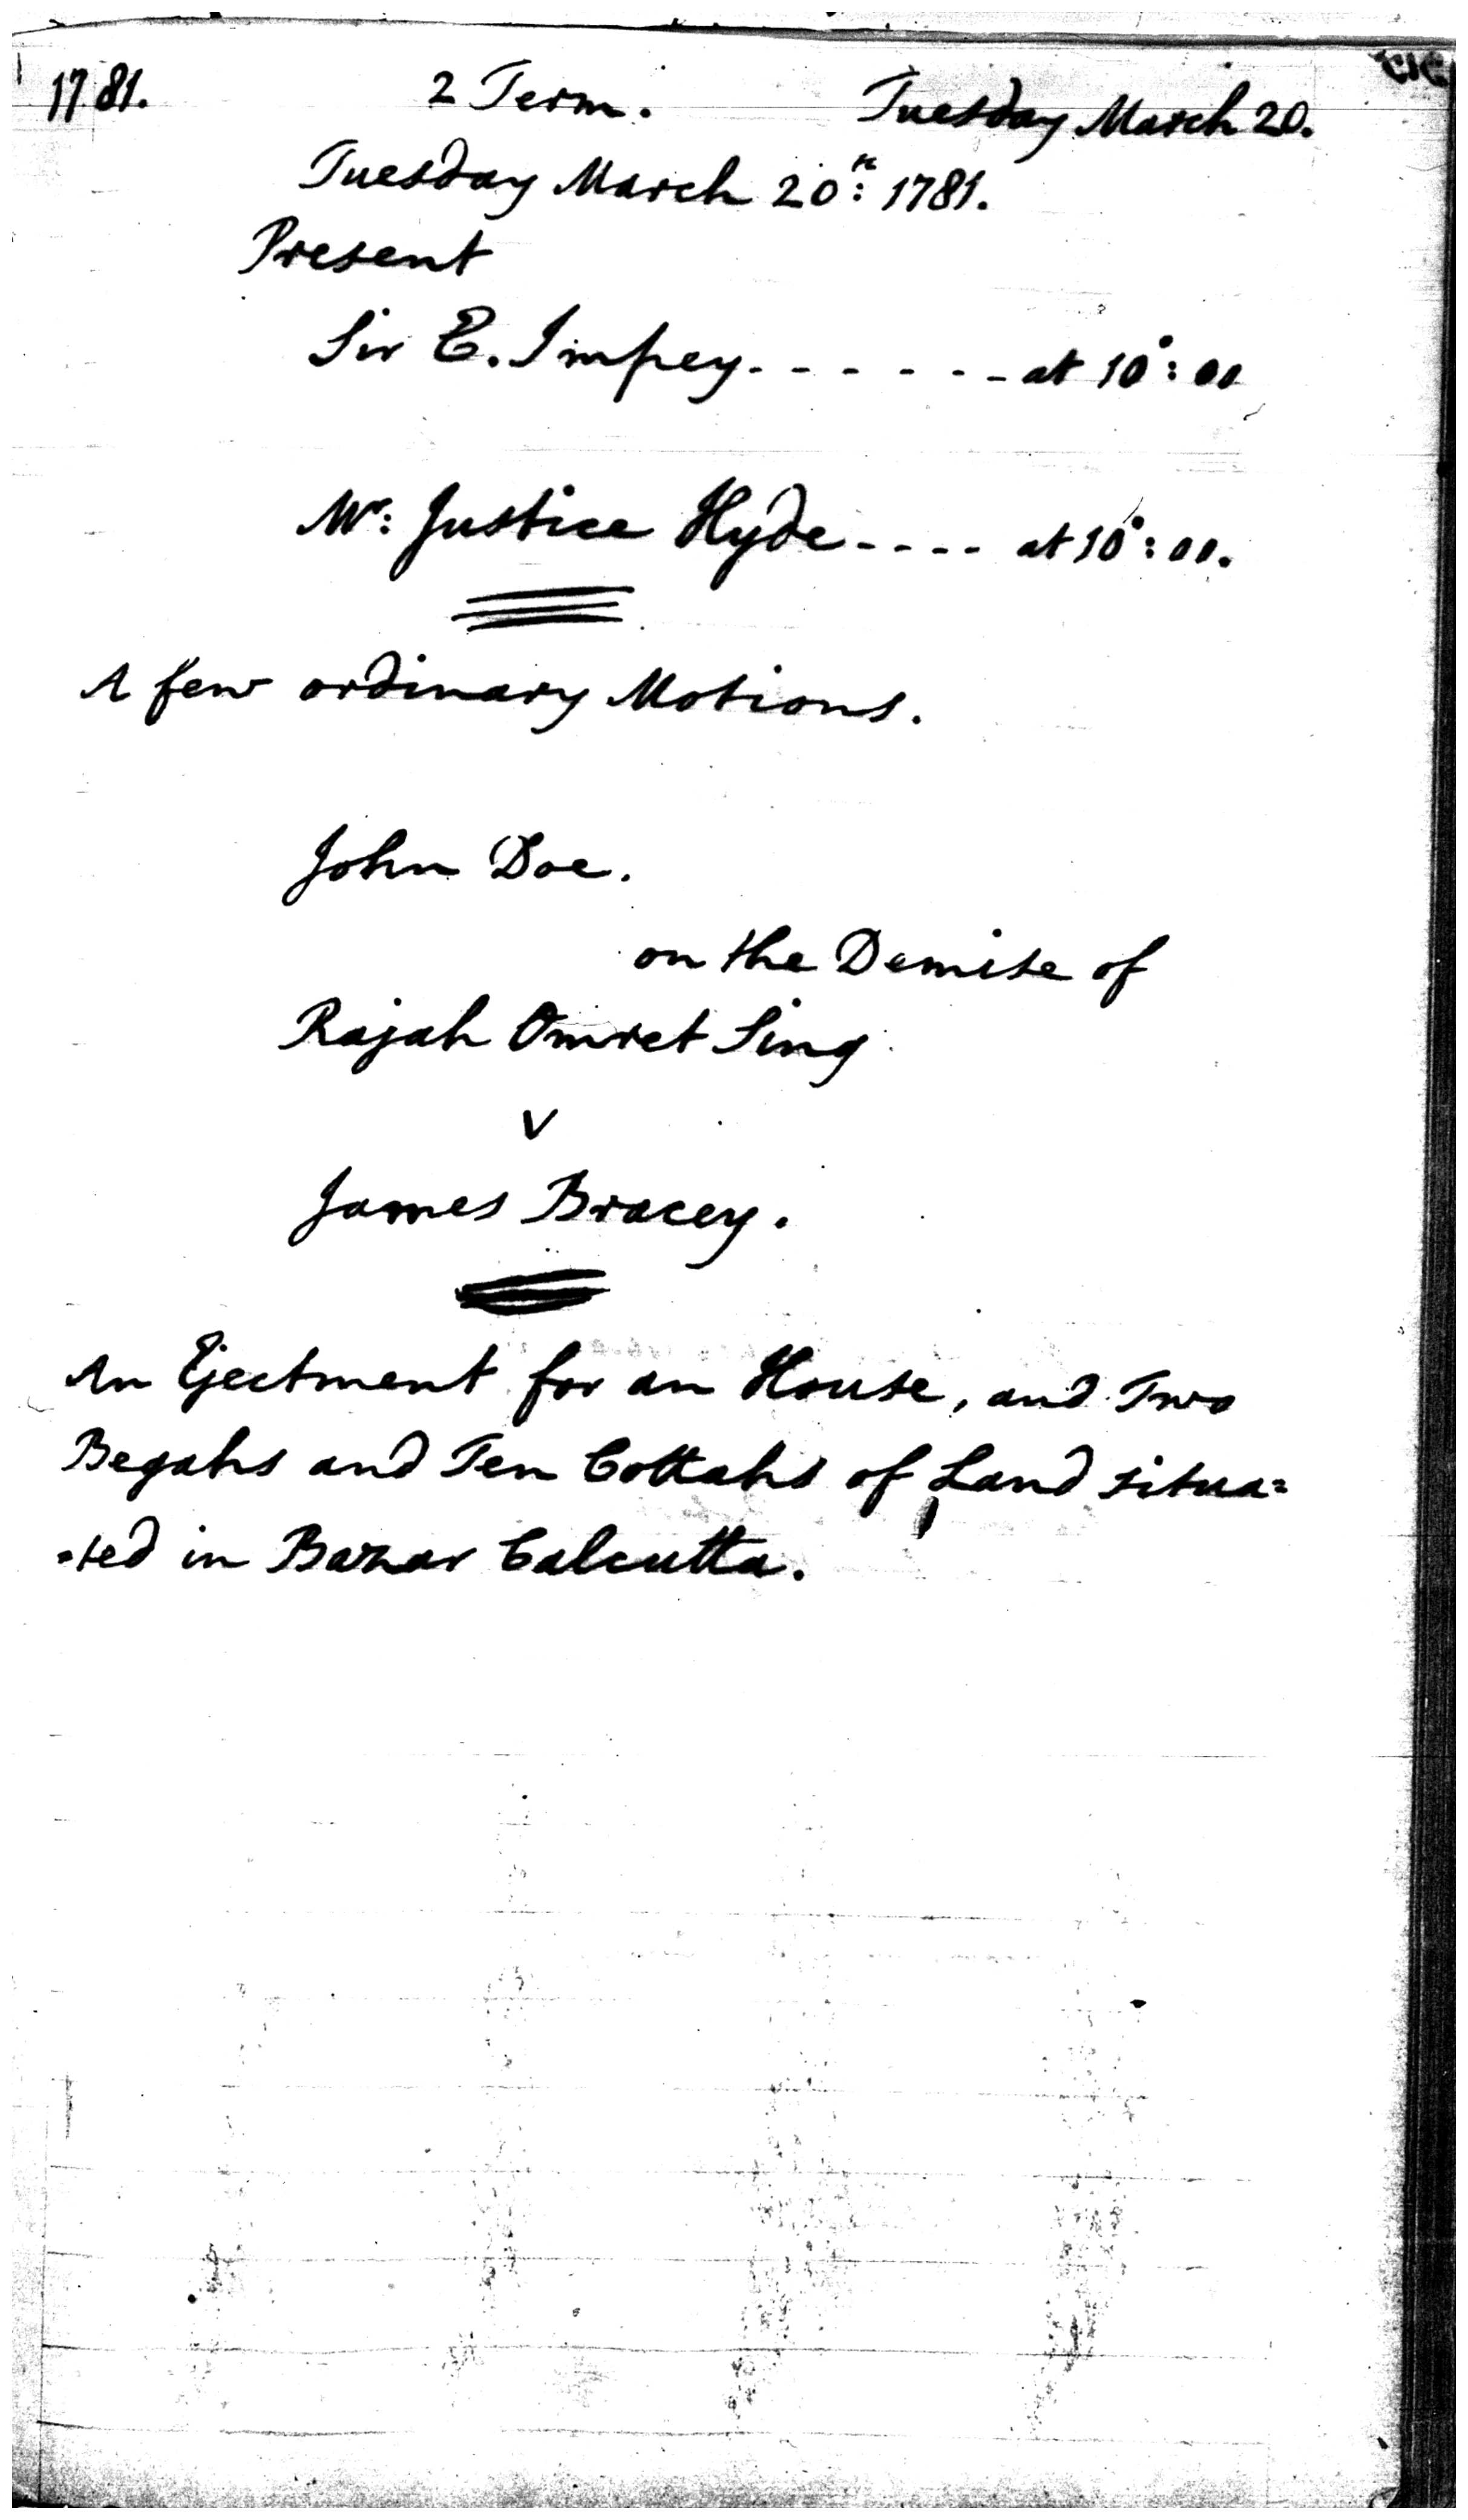 1781. 2 Term. Tuesday March 20.
Tuesday March 20th: 1781.
Present
Sir E. Impey. - - - - - - at 10°: 00
Mr: Justice Hyde - - - - at 10°: 00.
A few ordinary Motions.
John Doe.
on the Demise of
Rajah Omret Sing
v
James Bracey.
An Ejectment for an House, and Two
Begahs and Ten Cottahs of Land situa=
=ted in Bazar Calcutta.